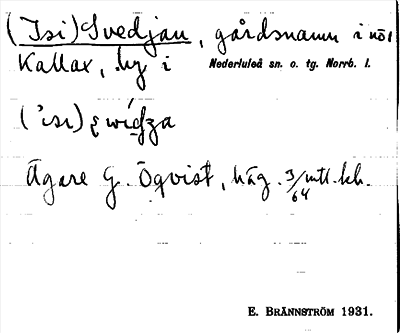 (Isi) Svedjan, gårdsnamn i nör
Kallax, by i Nederluleå sn. o. tg. Norrb. l.
Ägare G. Öqvist, häg. 3/64 mtl. kh.
E. BRÄNNSTRÖM 1931.